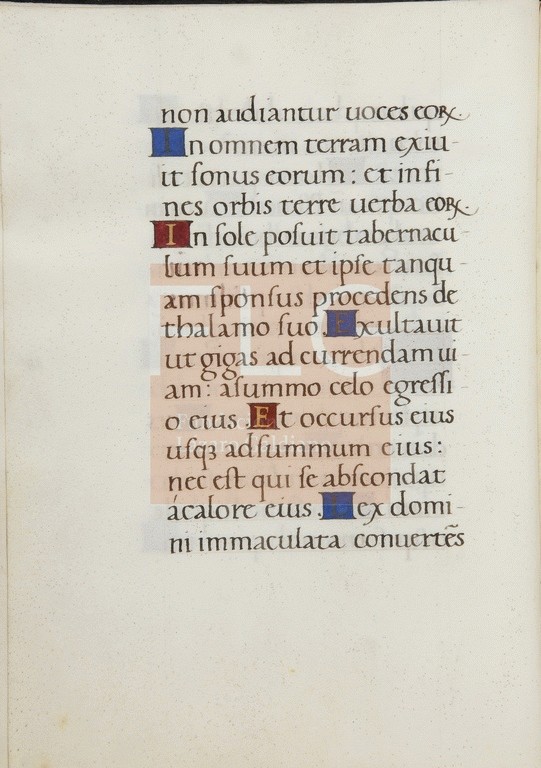 non audiantur uoces eoꝝ.
In omnem terram exiu-
it ſonus eorum: et in fi-
nes orbis terre uerba eoꝝ.
In ſole poſuit tabernacu-
lum ſuum et ipſe tanqu-
am ſponſus procedens de
thalamo ſuo. Exultauit
ut gigas ad currendam ui-
am: aſummo celo egreſſi-
o eius. Et occurſus eius
uſqꝫ ad ſummum eius:
nec eſt qui ſe abſcondat
ácalore eius. Lex domi-
ni immaculata conuertẽs
FLG